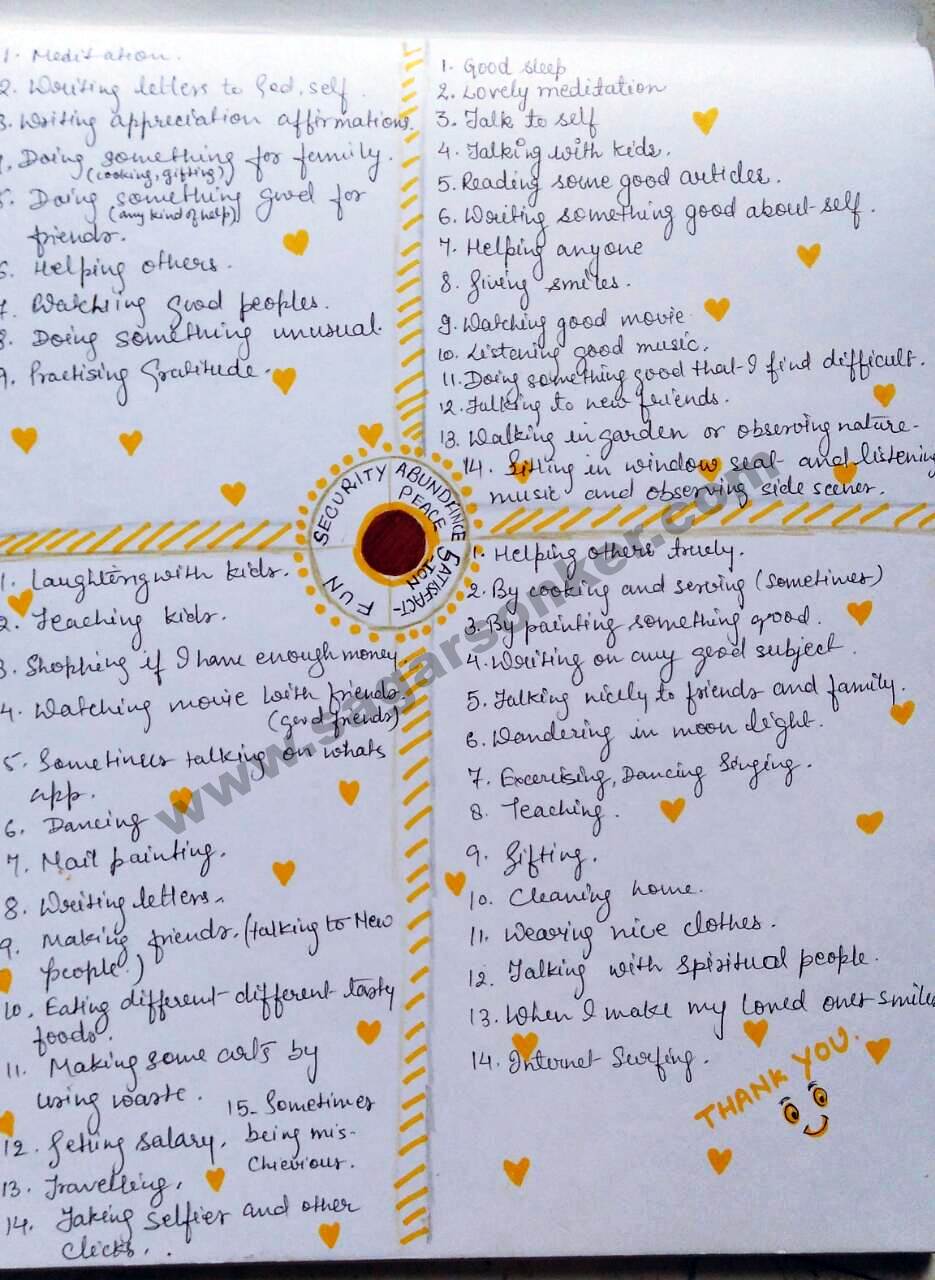 1. Meditation.
2. Writing letters to God, self.
3. Writing appreciation affirmations.
4. Doing something for family.
(cooking, gifting)
5. Doing something good for
(any kind of help)
friends.
6. Helping others.
7. Watching good peoples.
8. Doing something unusual.
9. Practising Gratitude.
1. Good sleep
2. Lovely meditation
3. Talk to self
4. Talking with kids.
5. Reading some good articles.
6. Writing something good about self.
7. Helping anyone
8. Giving smiles.
9. Watching good movie
10. Listening good music.
11. Doing something good that I find difficult.
12. Talking to new friends.
13. Walking in garden or observing nature-
14. Sitting in window seat and listening
music and observing side scenes.
SECURITY
ABUNDANCE
PEACE
SATISFACT-
-ION
FUN
1. Laughteing with kids.
2. Teaching kids.
3. Shopping if I have enough money.
4. Watching movie with friends.
(good friends)
5. Sometimes talking on whats
app.
6. Dancing
7. Nail painting.
8. Writing letters.
9. Making friends. (talking to New
people.)
10. Eating different-different tasty
foods.
11. Making some arts by
using waste.
12. Getting salary.
13. Travelling.
14. Taking selfies and other
clicks..
15- Sometimes
being mis-
chievious.
1. Helping others truely.
2. By cooking and serving (sometimes)
3. By painting something good.
4. Writing on any good subject.
5. Talking nicely to friends and family.
6. Wandering in moon light.
7. Excercising, Dancing Singing.
8. Teaching.
9. Gifting.
10. Cleaning home.
11. Wearing nice clothes.
12. Talking with spiritual people.
13. When I make my loved ones smiles
14. Internet Surfing.
THANK YOU.
www.sagarsonker.com